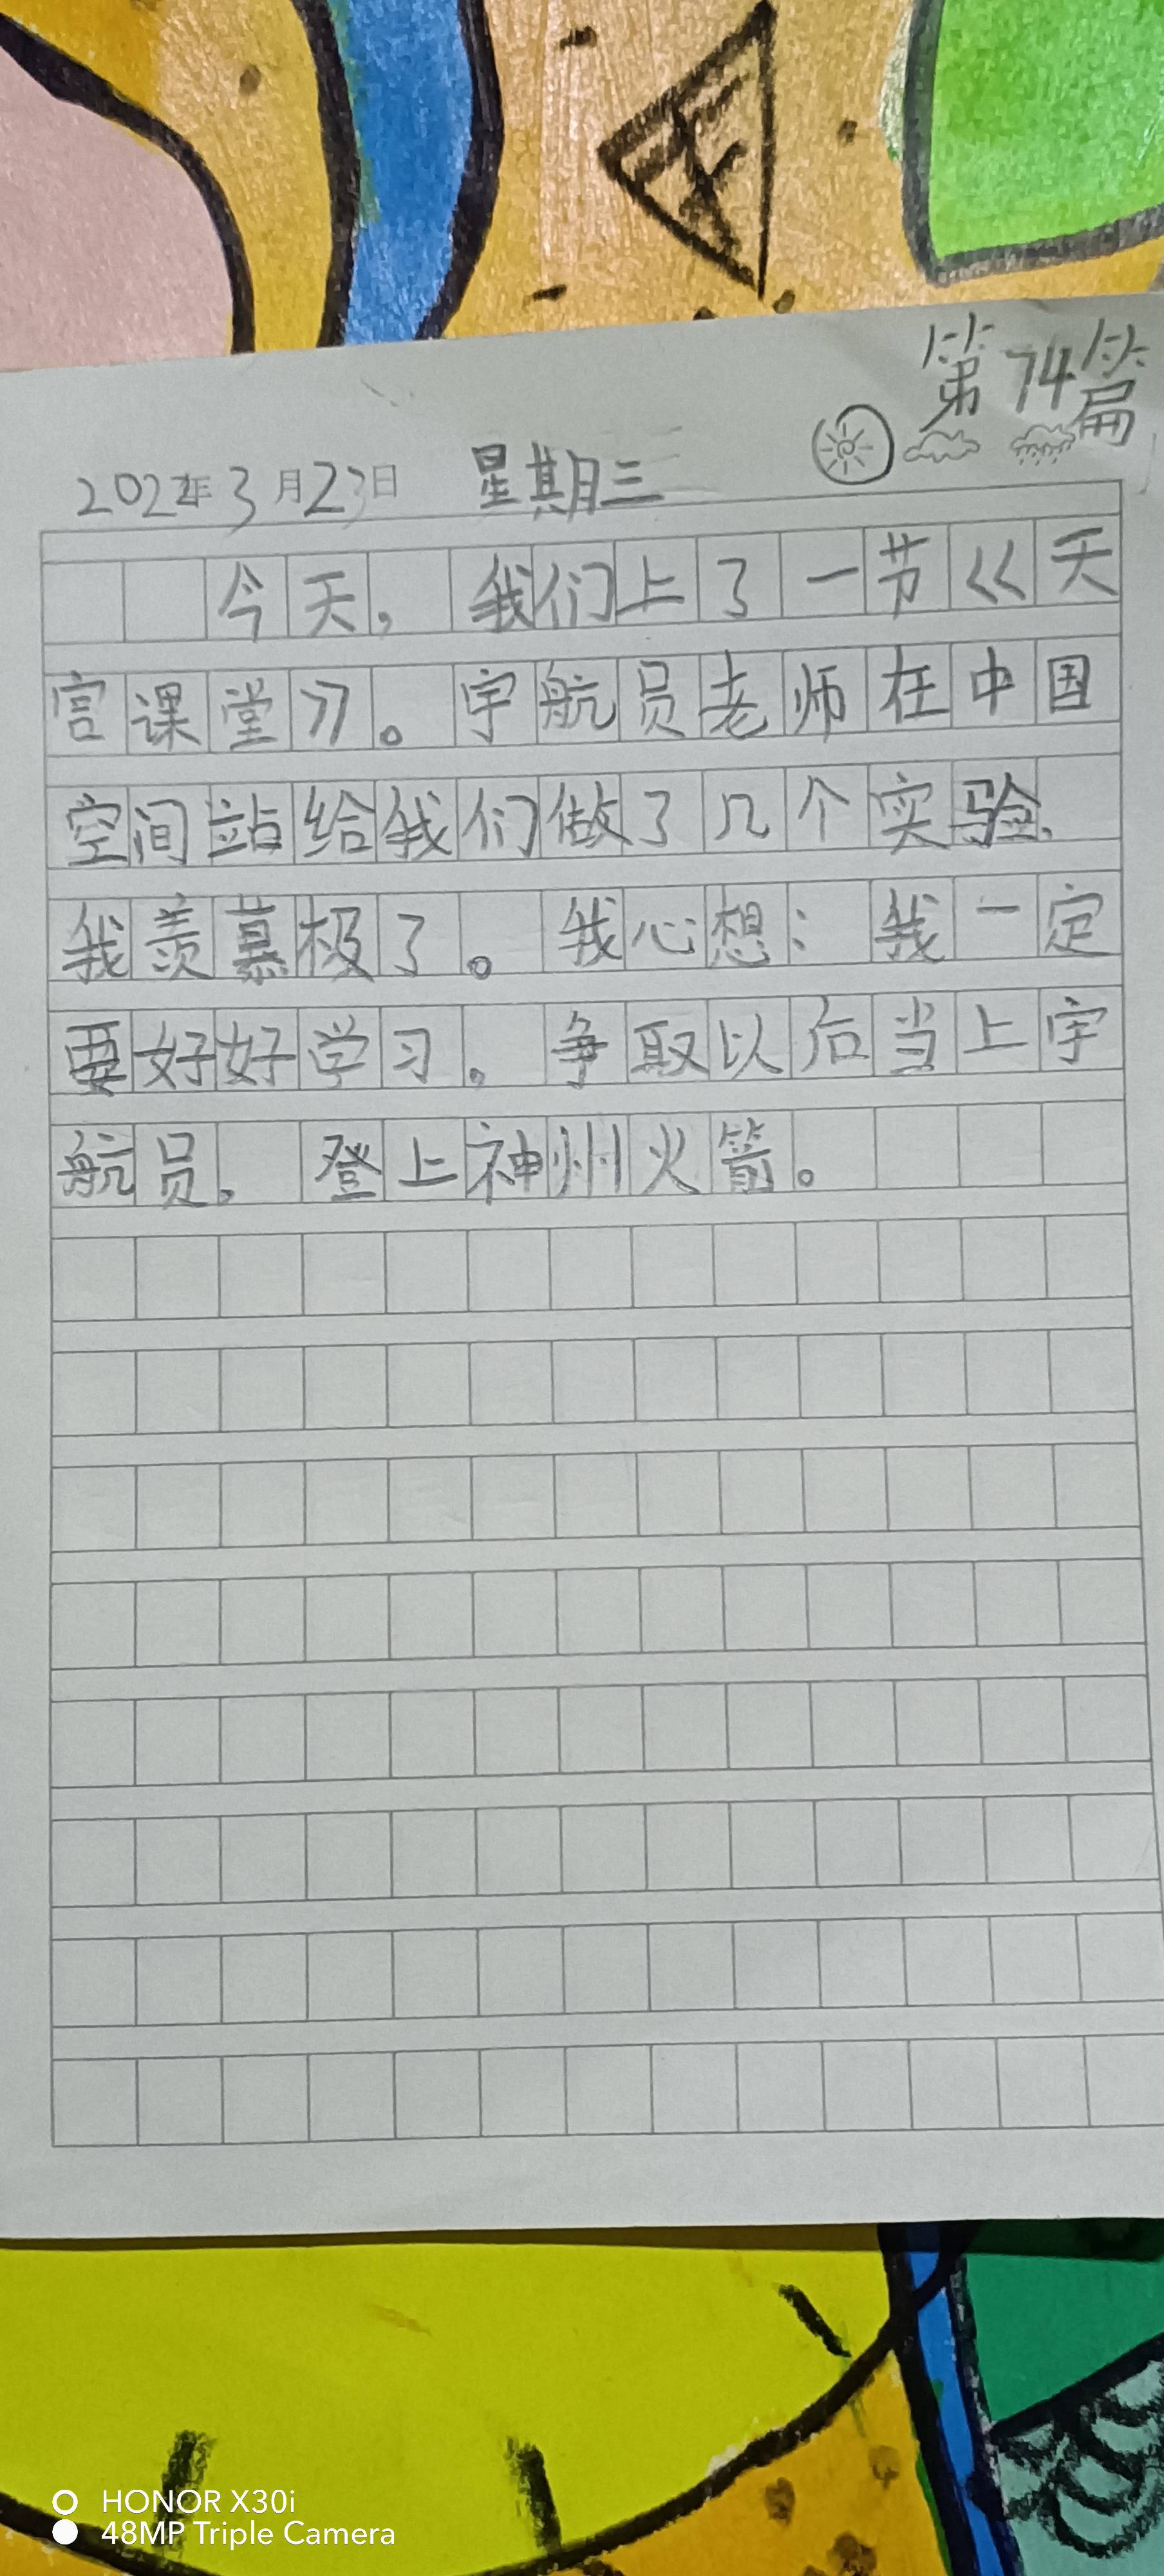 第74篇
2022年3月23日 星期三
今天，我们上了一节《天
宫课堂》。宇航员老师在中国
空间站给我们做了几个实验，
我羡慕极了。我心想：我一定
要好好学习，争取以后当上宇
航员，登上神州火箭。
HONOR X30i
48MP Triple Camera